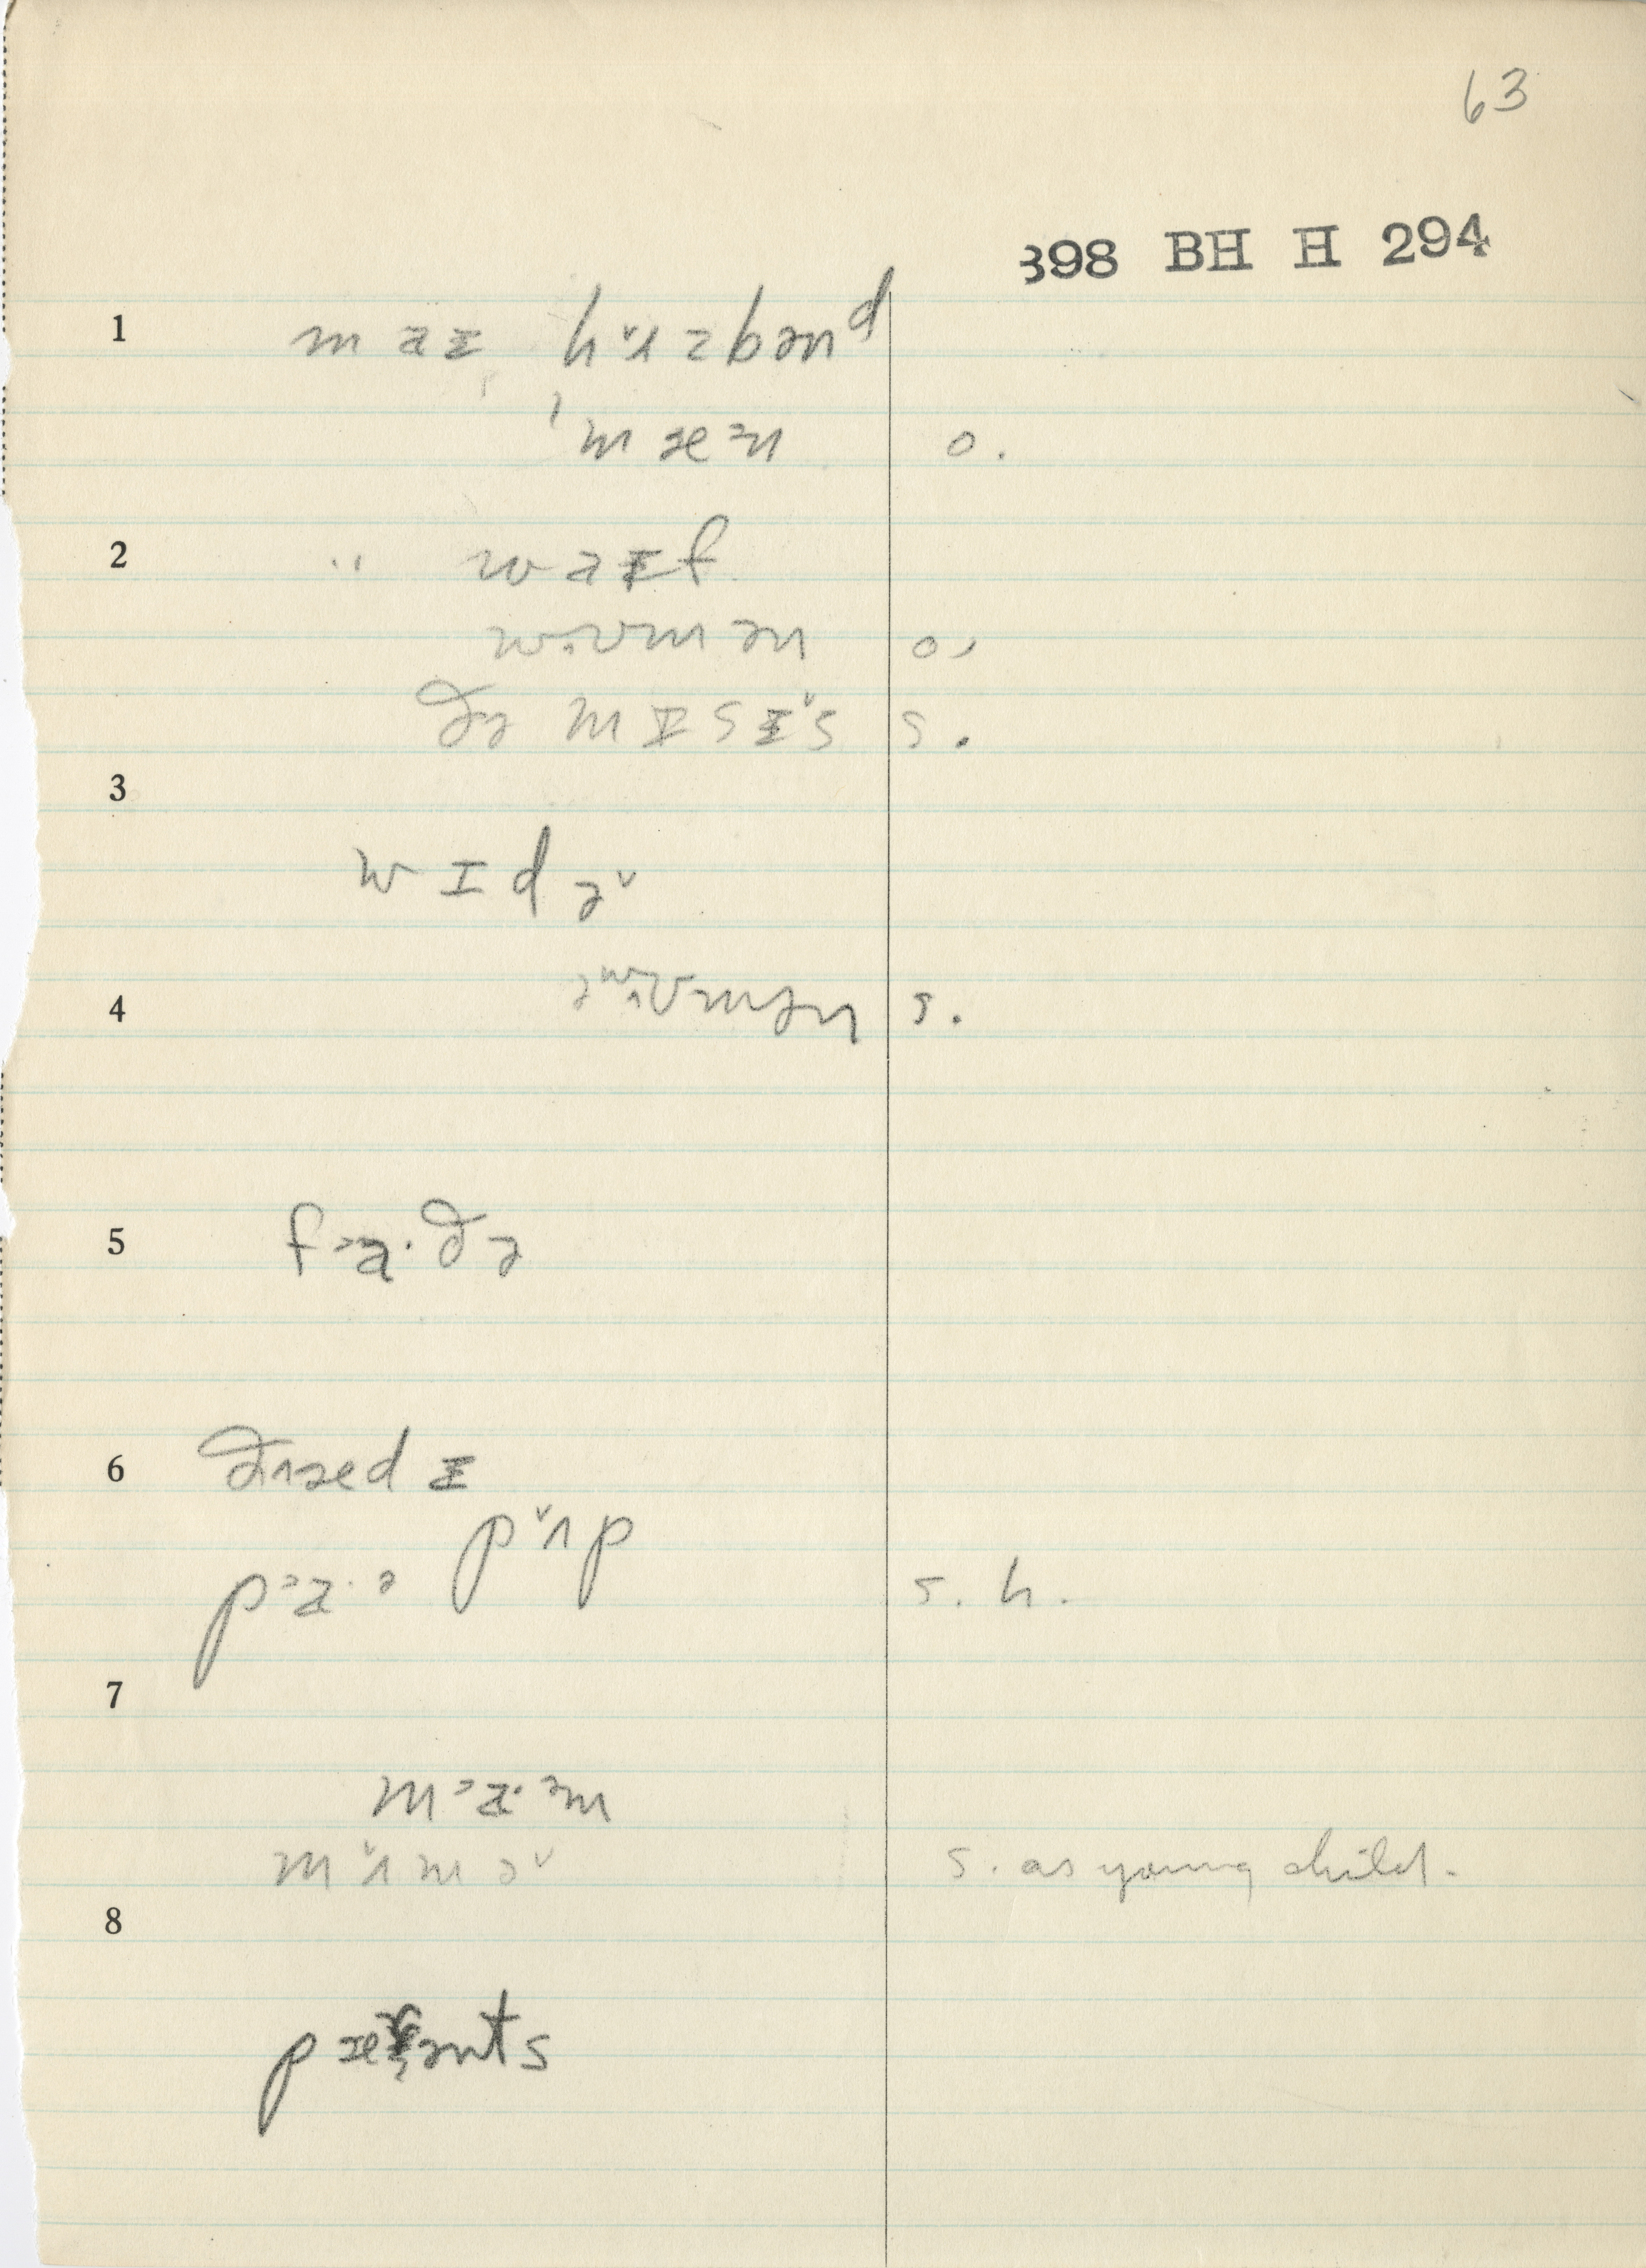 63
398 BH H 294
1 maɪ hʌ̌zbənᵈ
mæᵊn o.
2 " waɪf
wʊmən o.
ðə mɪsɪ̌s s.
3
wɪdə̌
4 ə wʊmən s.
5 fa·ðə
6 dædɪ
pʌ̌p
pa·ə s. h.
7
ma·ᵊm
mʌ̌mə̌ s. as young child.
8
pærənts